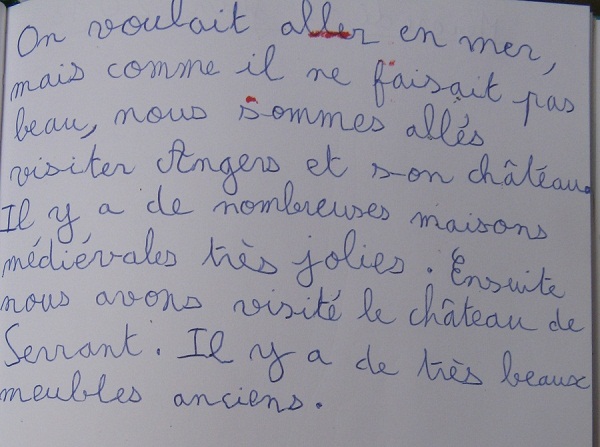 On voulait aller en mer,
mais comme il ne faisait pas
beau, nous sommes allés
visiter Angers et son château.
Il y a de nombreuses maisons
médiévales très jolies. Ensuite
nous avons visité le château de
Serrant. Il y a de très beaux
meubles anciens.